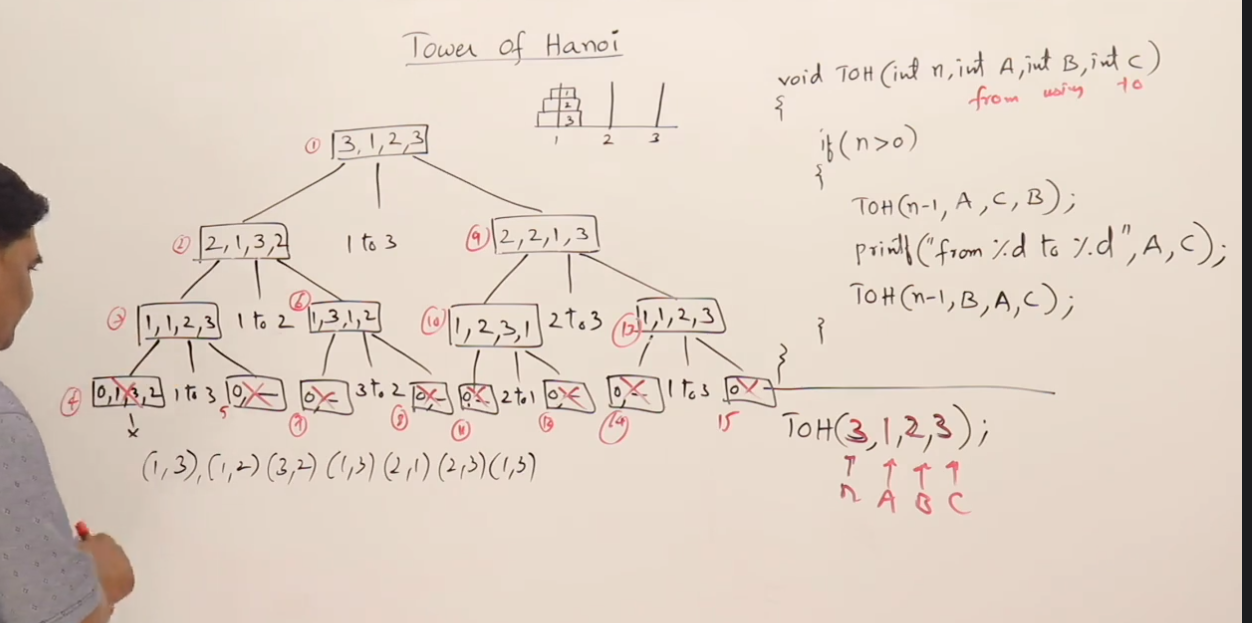 Tower of Hanoi
1
2
3
1 2 3
① 3,1,2,3
② 2,1,3,2 1 to 3 ⑨ 2,2,1,3
③ 1,1,2,3 1 to 2 ⑥ 1,3,1,2 ⑩ 1,2,3,1 2 to 3 1,1,2,3
④ 0,1,3,2 1 to 3 5 0, 0, 3 to 2 0, 0 2 to 1 0 0, 1 to 3 0
⑦ ⑧ ⑪ ⑭ 15
x
(1,3),(1,2)(3,2)(1,3)(2,1)(2,3)(1,3)
void TOH(int n,int A,int B,int C)
from using to
{
if(n>0)
{
TOH(n-1, A,C,B);
printf("from %d to %d",A,C);
TOH(n-1,B,A,C);
}
}
TOH(3,1,2,3);
n A B C